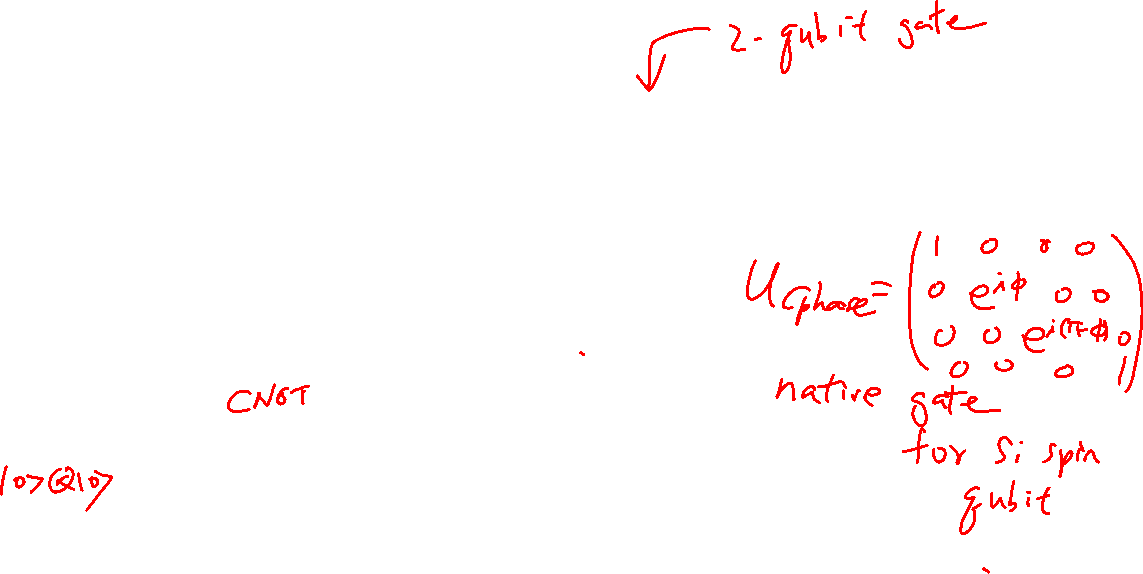 2-qubit gate
U_Cphase = (1 0 0 0
0 e^{iφ} 0 0
0 0 e^{i(π-φ)} 0
0 0 0 1)
CNOT
native gate
for Si spin
qubit
|0>⊗|0>